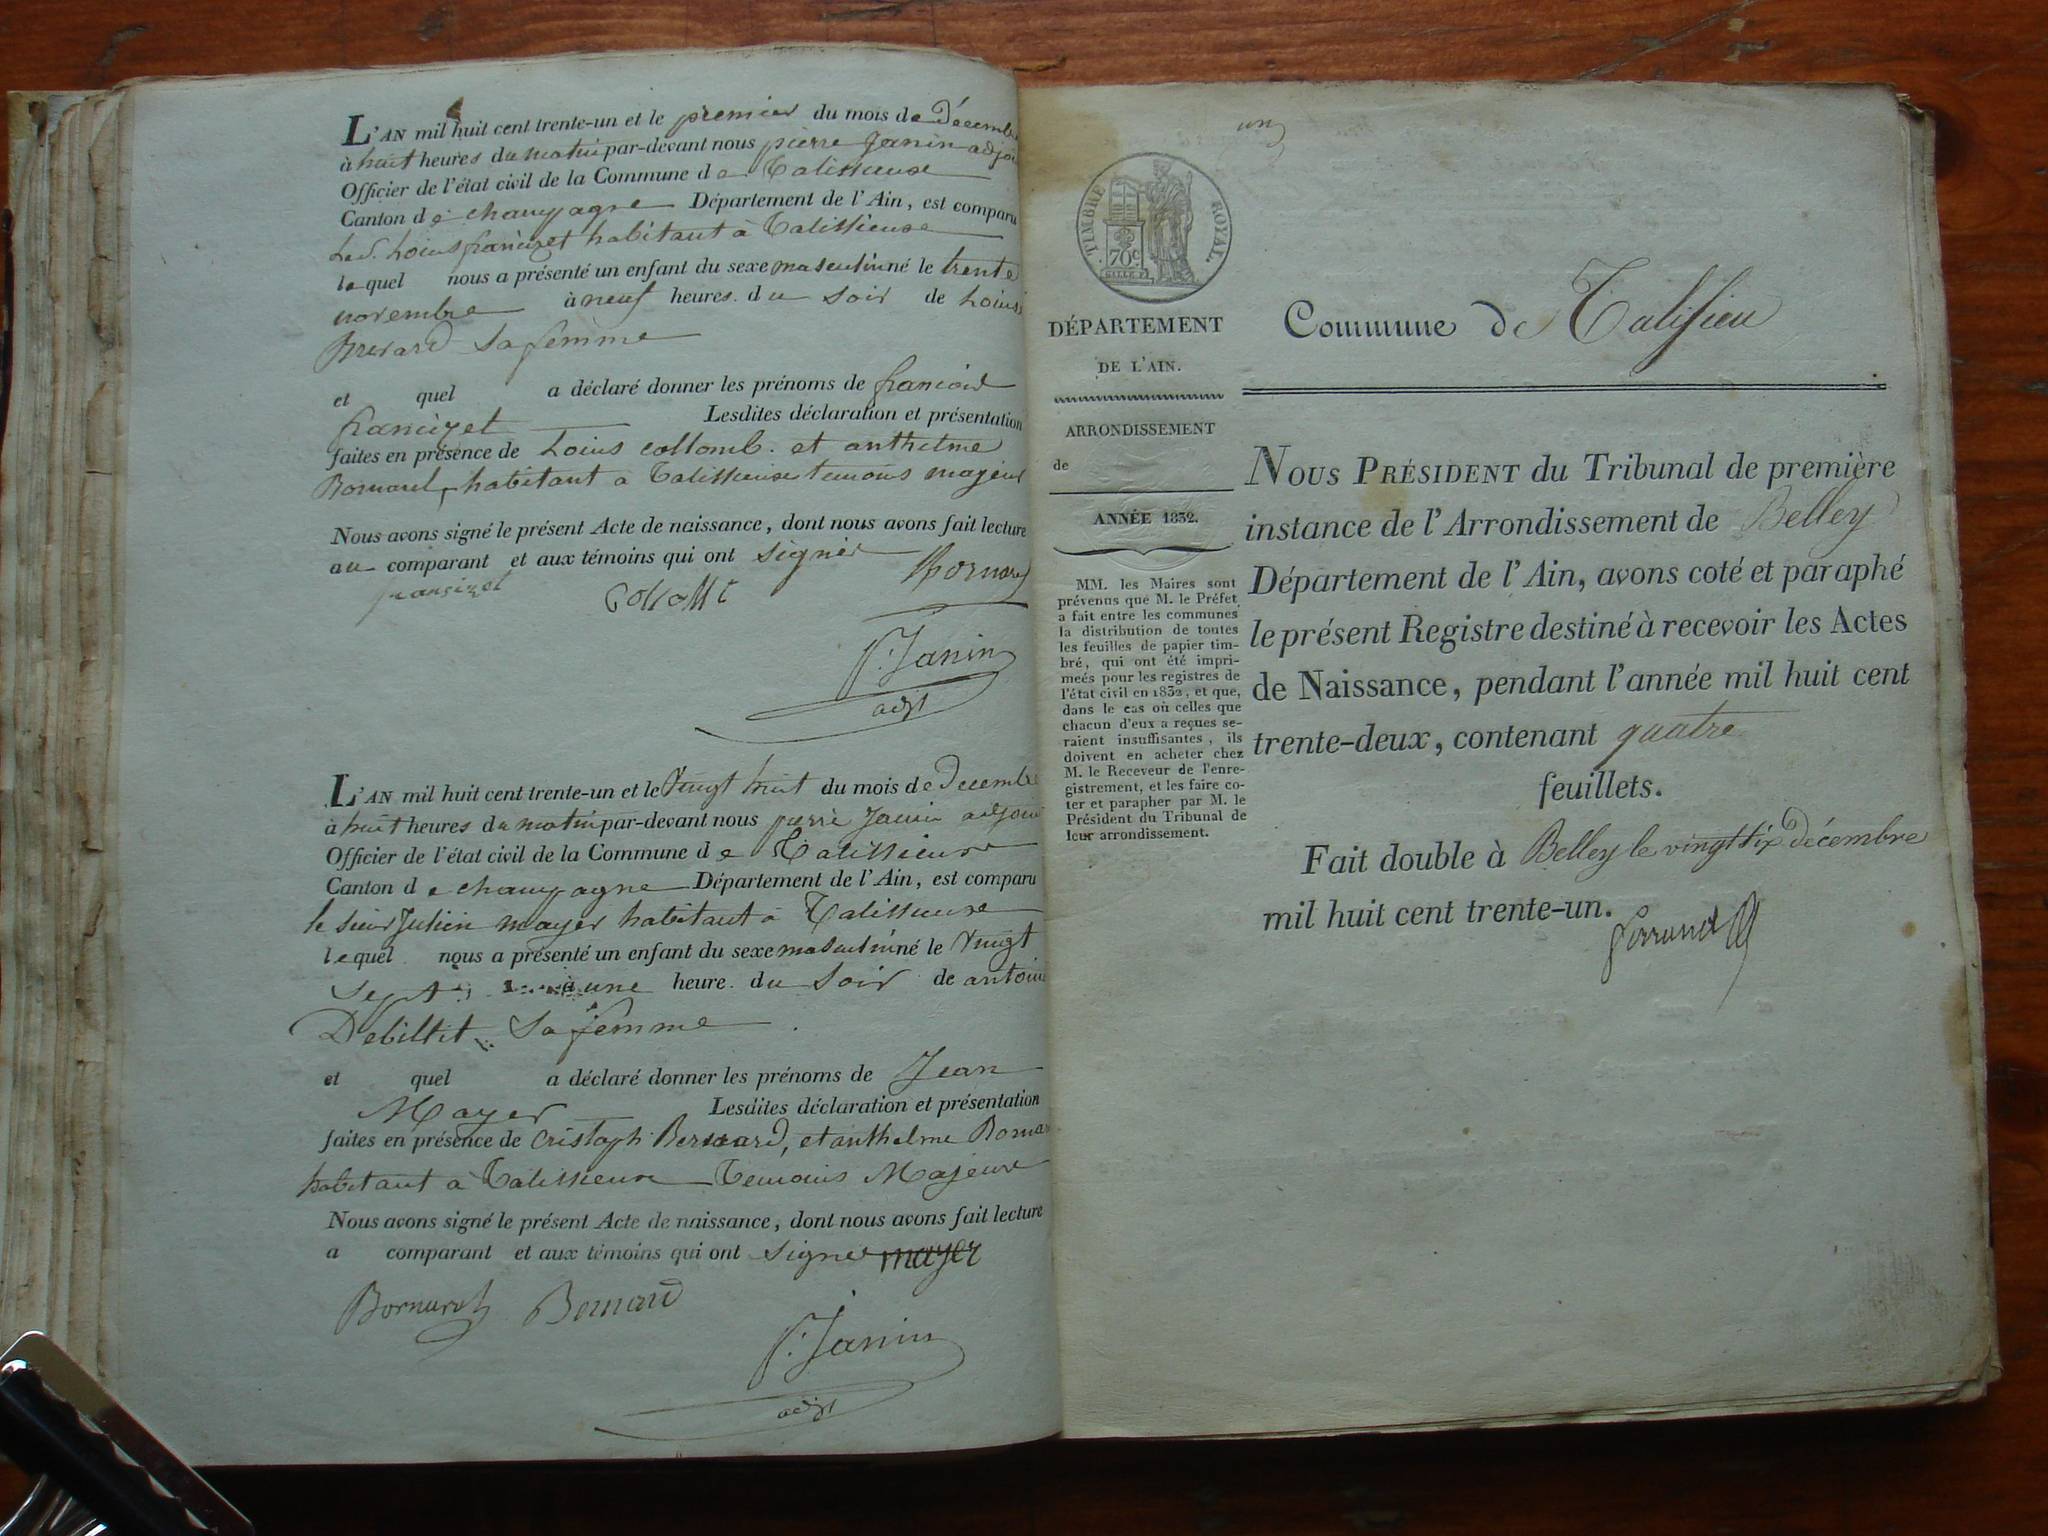 L'AN mil huit cent trente-un et le premier du mois de Décembre
à huit heures du matin par-devant nous pierre Janin adjoi
Officier de l'état civil de la Commune de Talissieux
Canton de champagne Département de l'Ain, est comparu
habitant à Talissieux
lequel nous a présenté un enfant du sexe masculin né le trente
novembre à neuf heures du soir de
sa femme
et quel a déclaré donner les prénoms de
Lesdites déclaration et présentation
faites en présence de Louis collomb. et anthelme
habitant a Talissieux temoins majeur
Nous avons signé le présent Acte de naissance, dont nous avons fait lecture
au comparant et aux témoins qui ont signer
P. Janin
adjt
L'AN mil huit cent trente-un et le Vingt huit du mois de Decembre
à huit heures du matin par-devant nous pierre Janin adjoin
Officier de l'état civil de la Commune de Talissieux
Canton de champagne Département de l'Ain, est comparu
le sieur Julien mayer habitant à Talissieux
lequel nous a présenté un enfant du sexe masculin né le Vingt
Sept à une heure du Soir de antoin
Sa femme
et quel a déclaré donner les prénoms de Jean
Mayer Lesdites déclaration et présentation
faites en présence de Cristoph Bernard, et anthelme
habitant à Talissieux Temoins Majeurs
Nous avons signé le présent Acte de naissance, dont nous avons fait lecture
a comparant et aux témoins qui ont signer mayer
Bernard
P. Janin
adjt
un
TIMBRE ROYAL.
70 c
DÉPARTEMENT
DE L'AIN.
ARRONDISSEMENT
de
ANNÉE 1832.
MM. les Maires sont
prévenus que M. le Préfet
a fait entre les communes
la distribution de toutes
les feuilles de papier tim-
bré, qui ont été impri-
meés pour les registres de
l'état civil en 1832, et que,
dans le cas où celles que
chacun d'eux a reçues se-
raient insuffisantes, ils
doivent en acheter chez
M. le Receveur de l'enre-
gistrement, et les faire co-
ter et parapher par M. le
Président du Tribunal de
leur arrondissement.
Commune de Talissieu
NOUS PRÉSIDENT du Tribunal de première
instance de l'Arrondissement de Belley
Département de l'Ain, avons coté et paraphé
le présent Registre destiné à recevoir les Actes
de Naissance, pendant l'année mil huit cent
trente-deux, contenant quatre
feuillets.
Fait double à Belley le vingt six décembre
mil huit cent trente-un.